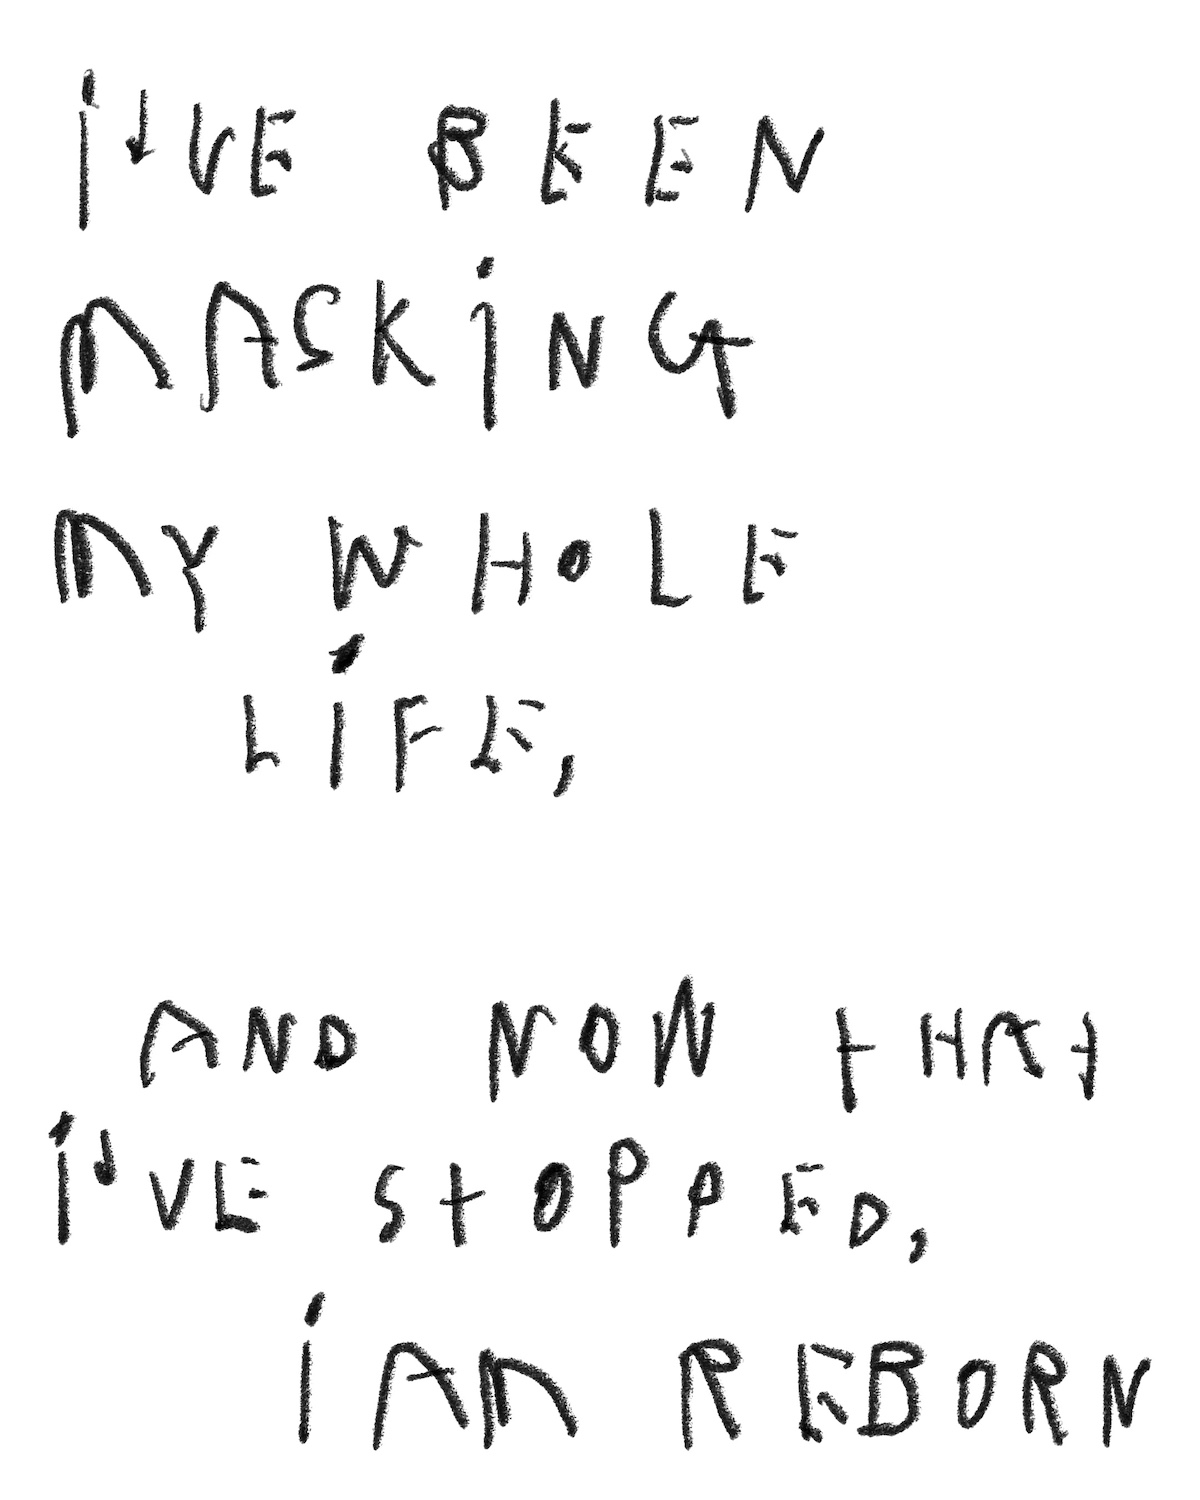 i'VE BEEN
MASKiNG
MY WHOLE
LiFE,
AND NOW tHAt
i'VE StOPPED,
i AM REBORN